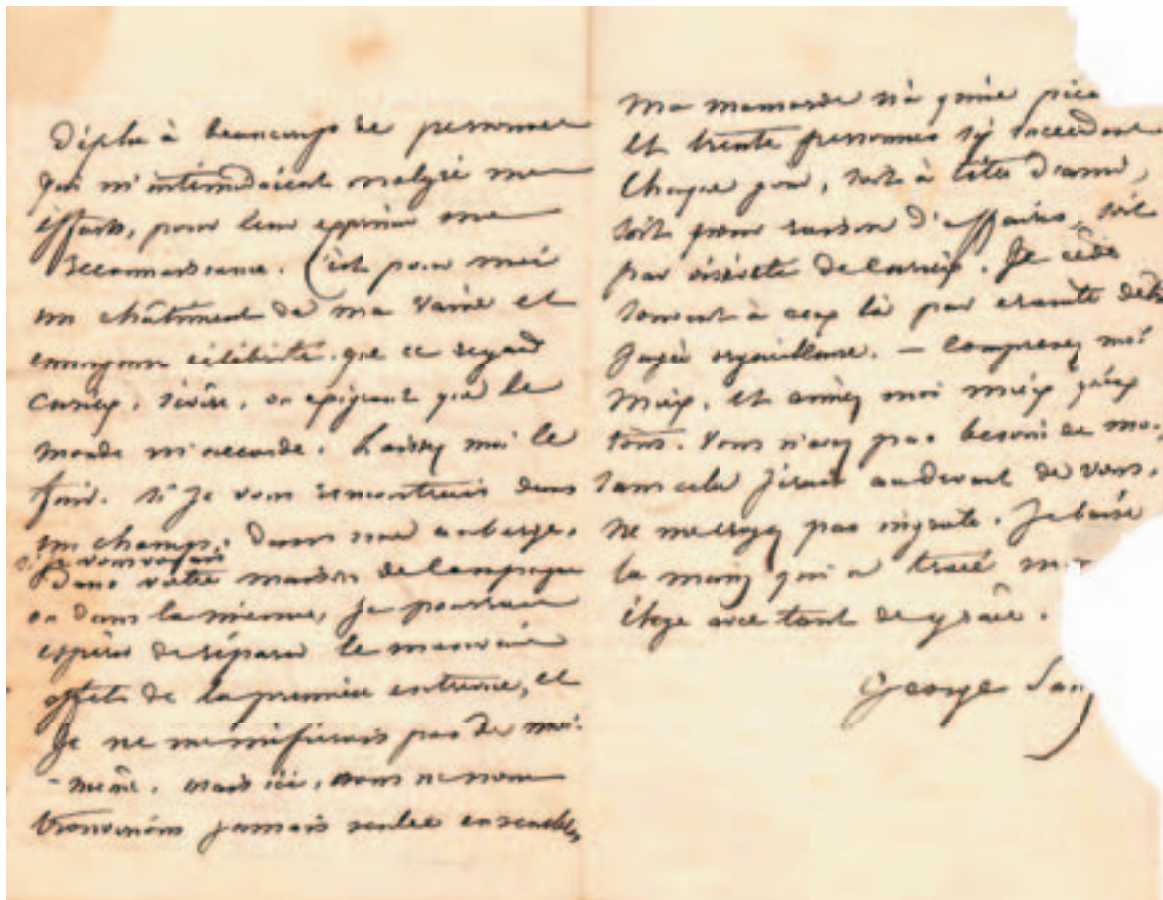 déplu à beaucoup de personnes
qui m'intimidaient malgré mes
efforts, pour leur exprimer ma
reconnaissance. C'est pour moi
un châtiment de ma vaine et
ennuyeuse célébrité que ce regard
curieux, sévère, ou exigeant que le
monde m'accorde. Laissez moi le
fuir. Si je vous rencontrais dans
un champ, dans une auberge,
si je vous voyais
dans votre maison de campagne
ou dans la mienne, je pourrais
espérer de réparer le mauvais
effet de la première entrevue, et
je ne me méfierais pas de moi-
-même. mais ici, nous ne nous
trouverons jamais seules ensemble,
Ma mansarde n'a qu'une pièce
et trente personnes s'y succèdent
chaque jour, soit à titre d'amis,
soit pour raison d'affaires, soit
par de curieux. Je cède
souvent à ceux là par crainte d'être
jugée orgueilleuse. — Comprenez moi
mieux, et aimez moi mieux qu'eux
tous. Vous n'avez pas besoin de moi,
sans cela j'irais au devant de vous.
ne me croyez pas ingrate. Je baise
la main qui a tracé mon
éloge avec tant de grâce.
George San